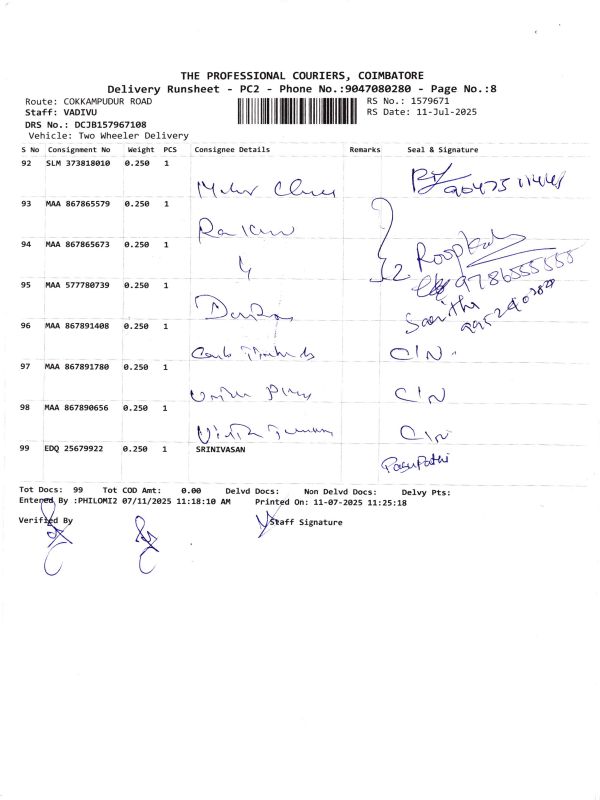 THE PROFESSIONAL COURIERS, COIMBATORE
Delivery Runsheet - PC2 - Phone No.:9047080280 - Page No.:8
Route: COKKAMPUDUR ROAD
Staff: VADIVU
DRS No.: DCJB157967108
Vehicle: Two Wheeler Delivery
RS No.: 1579671
RS Date: 11-Jul-2025
S No Consignment No Weight PCS Consignee Details Remarks Seal & Signature
92 SLM 373818010 0.250 1
93 MAA 867865579 0.250 1
94 MAA 867865673 0.250 1
2 9786555558
95 MAA 577780739 0.250 1
Saritha
96 MAA 867891408 0.250 1
CIN
97 MAA 867891780 0.250 1
CIN
98 MAA 867890656 0.250 1
CIN
99 EDQ 25679922 0.250 1 SRINIVASAN
Pasupathi
Tot Docs: 99 Tot COD Amt: 0.00 Delvd Docs: Non Delvd Docs: Delvy Pts:
Entered By :PHILOMI2 07/11/2025 11:18:10 AM Printed On: 11-07-2025 11:25:18
Verified By Staff Signature